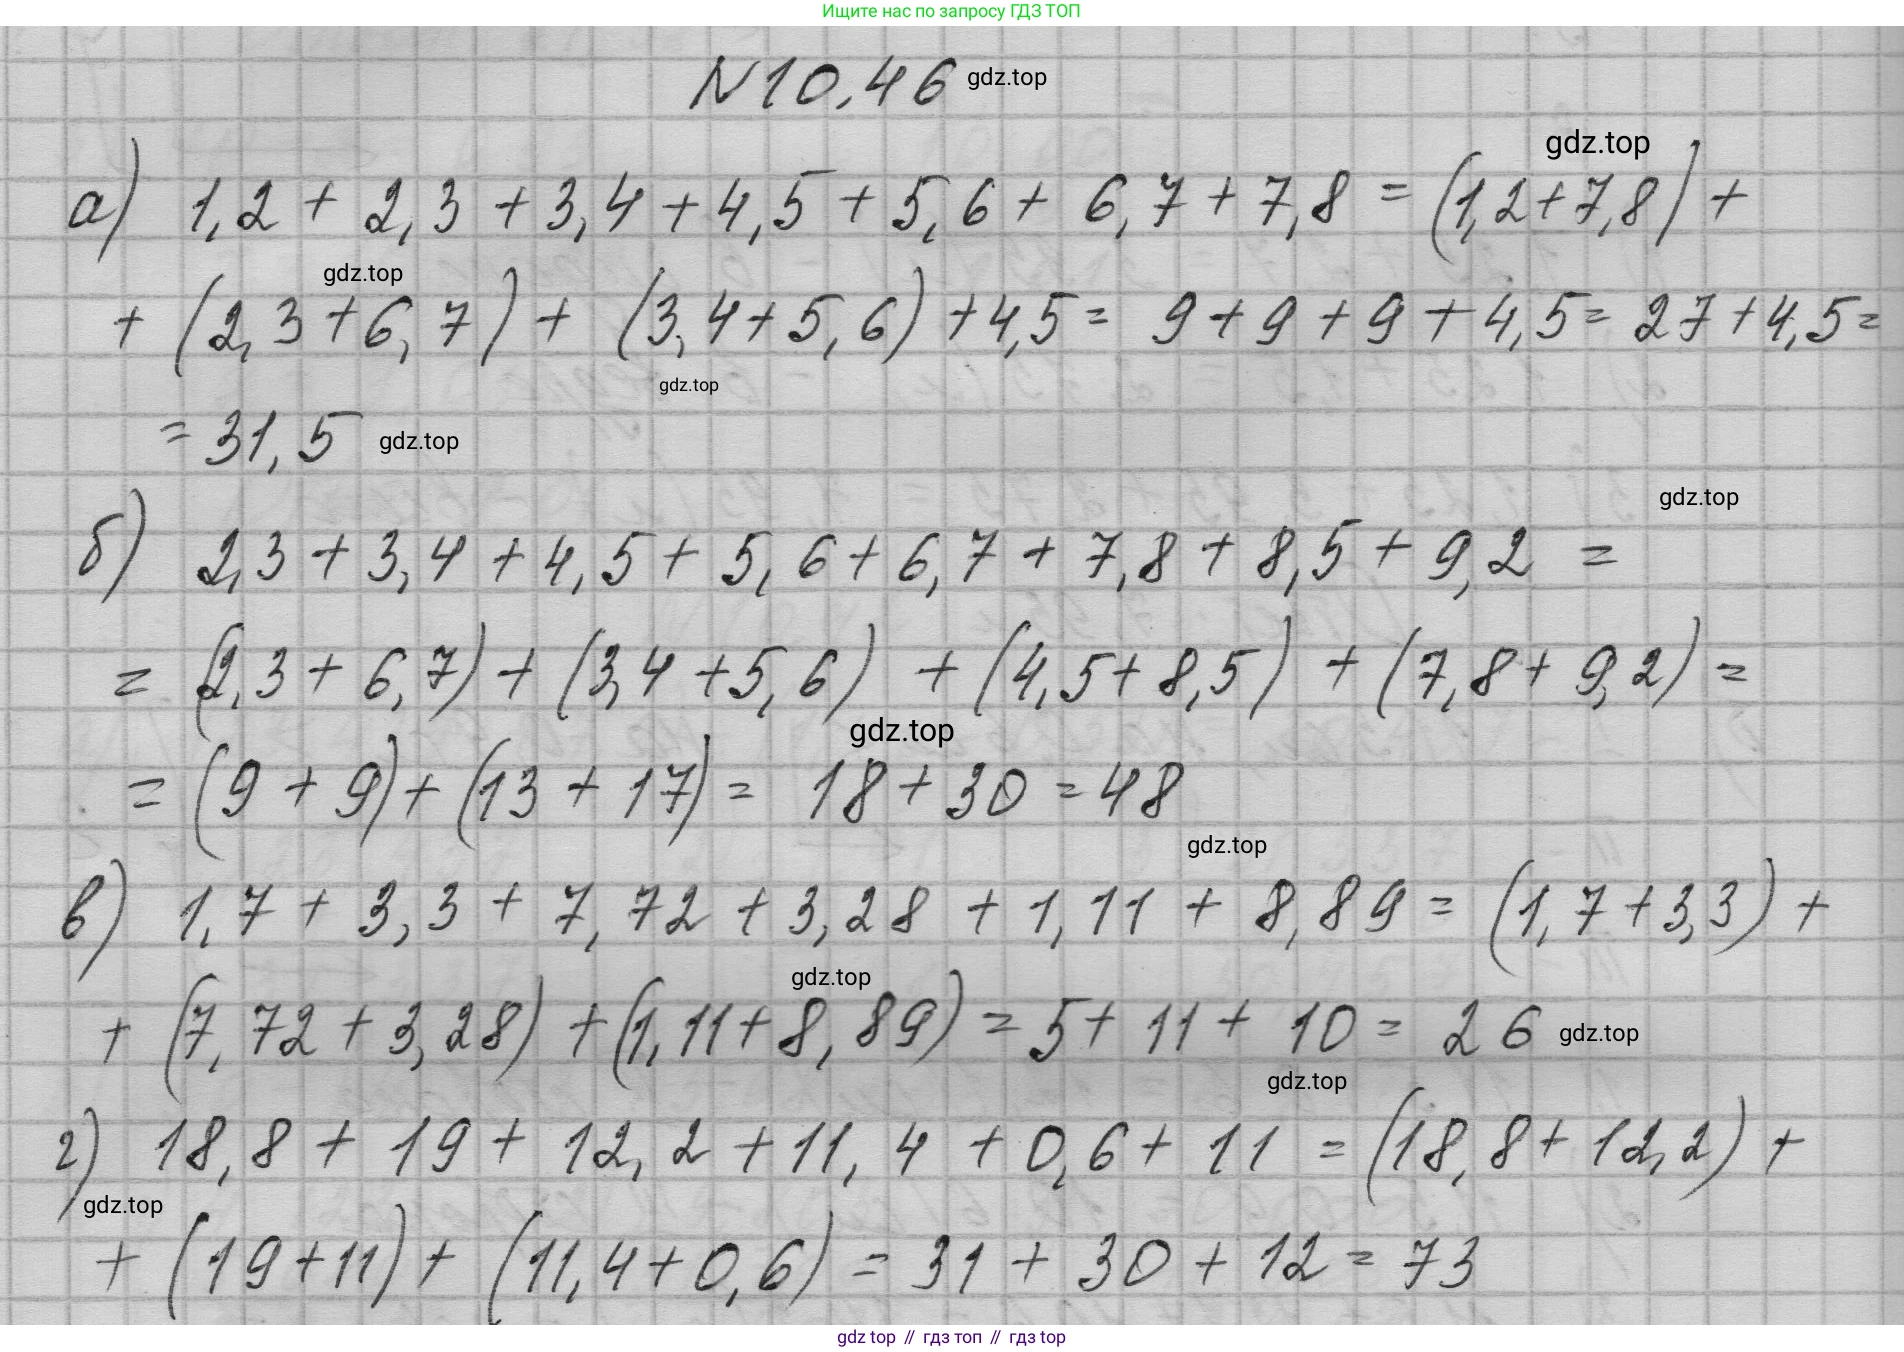 Ищите нас по запросу ГДЗ ТОП
N10.46 gdz.top
gdz.top
а) 1,2 + 2,3 + 3,4 + 4,5 + 5,6 + 6,7 + 7,8 = (1,2 + 7,8) +
gdz.top
+ (2,3 + 6,7) + (3,4 + 5,6) + 4,5 = 9 + 9 + 9 + 4,5 = 27 + 4,5 =
gdz.top
= 31,5 gdz.top
gdz.top
б) 2,3 + 3,4 + 4,5 + 5,6 + 6,7 + 7,8 + 8,5 + 9,2 =
= (2,3 + 6,7) + (3,4 + 5,6) + (4,5 + 8,5) + (7,8 + 9,2) =
gdz.top
= (9 + 9) + (13 + 17) = 18 + 30 = 48
gdz.top
в) 1,7 + 3,3 + 7,72 + 3,28 + 1,11 + 8,89 = (1,7 + 3,3) +
gdz.top
+ (7,72 + 3,28) + (1,11 + 8,89) = 5 + 11 + 10 = 26 gdz.top
gdz.top
г) 18,8 + 19 + 12,2 + 11,4 + 0,6 + 11 = (18,8 + 12,2) +
gdz.top
+ (19 + 11) + (11,4 + 0,6) = 31 + 30 + 12 = 73
gdz top // гдз топ // гдз top